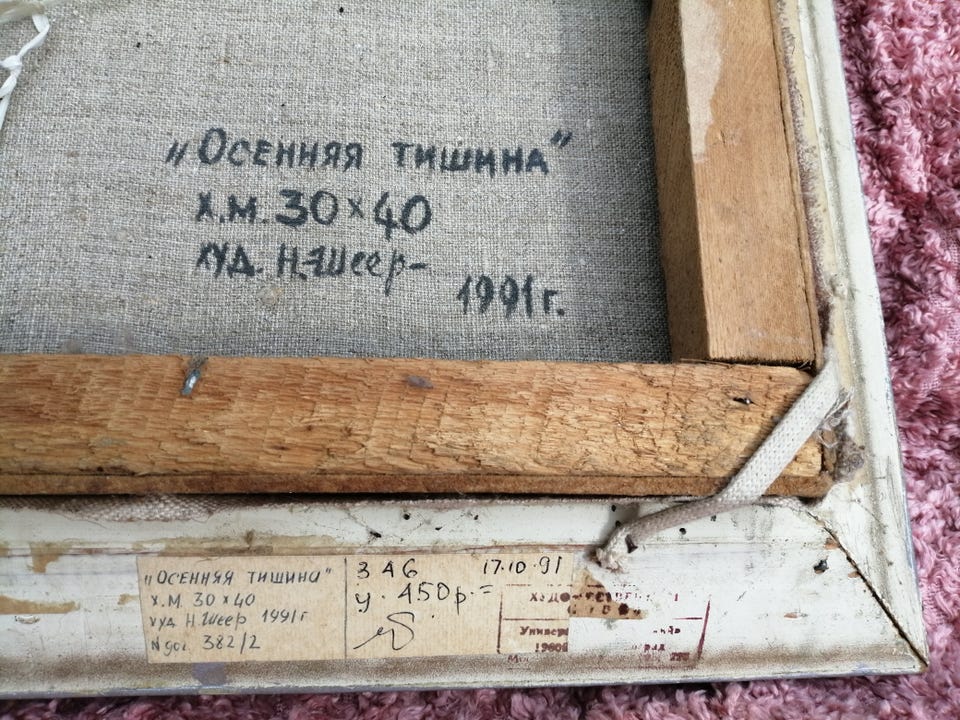 „Осенняя тишина"
х.м. 30×40
худ. Н.Шеер-
1991г.
„Осенняя тишина"
х.м. 30×40
худ Н.Шеер 1991г
№дог 382/2
346 17.10.91
ц. 450р.=